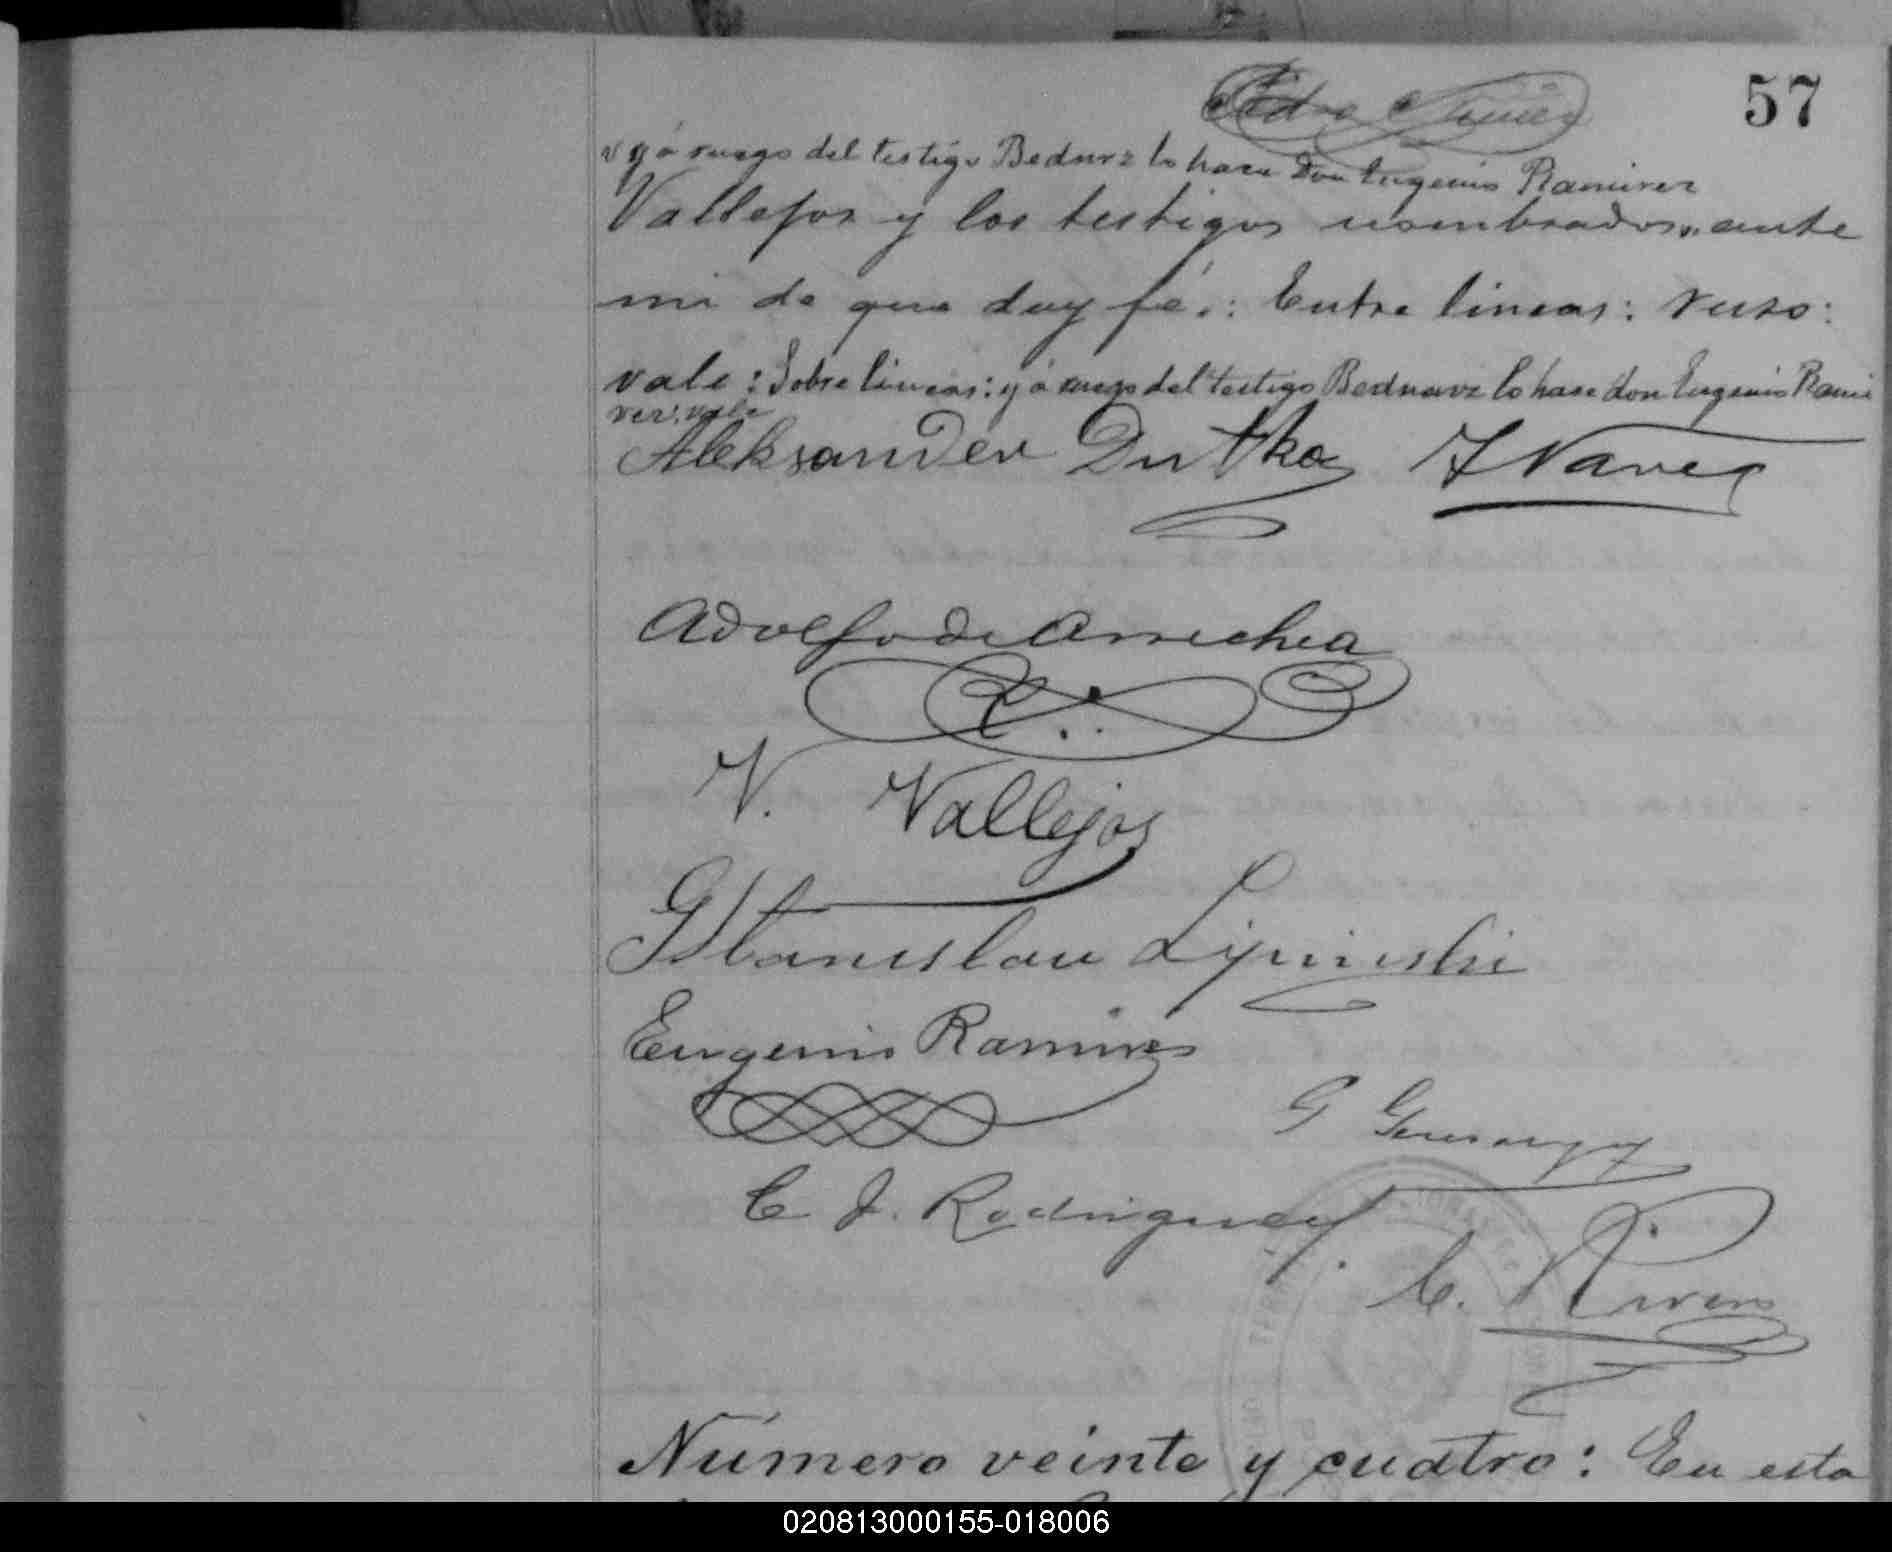 57
Pedro Núñez
y á ruego del testigo Bednarz lo hace Don Eugenio Ramirez
Vallejos y los testigos nombrados, ante
mi de que doy fé.: Entre lineas: ruso:
vale: Sobre lineas: y á ruego del testigo Bednarz lo hace don Eugenio Rami
rez: vale
Aleksander Dutka
Adolfo de Arrechea
N. Vallejos
Stanislau Lipinski
Eugenio Ramires
C J. Rodriguez
Número veinte y cuatro: En esta
020813000155-018006